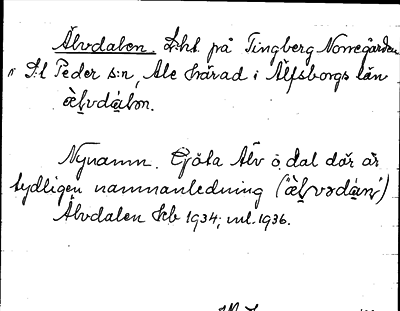 Älvdalen. Lht. på Tingberg Norregården
i S:t Peder s:n, Ale härad i Älfsborgs län
ὰlvdálən.
Nynamn. Göta Älv o. dal där är
tydligen namnanledning (ὰlvədán)
Älvdalen Jrb 1934; vul. 1936.